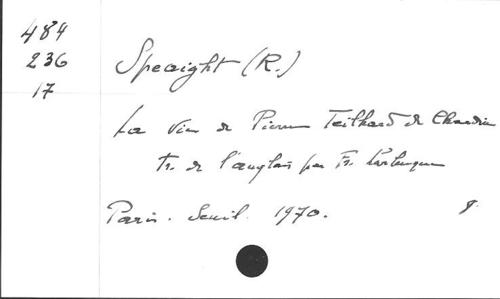 484
236
17
Speaight (R.)
La vie de Pierre Teilhard de Chardin
tr. de l'anglais par Fr.
Paris. Seuil. 1970. 8.